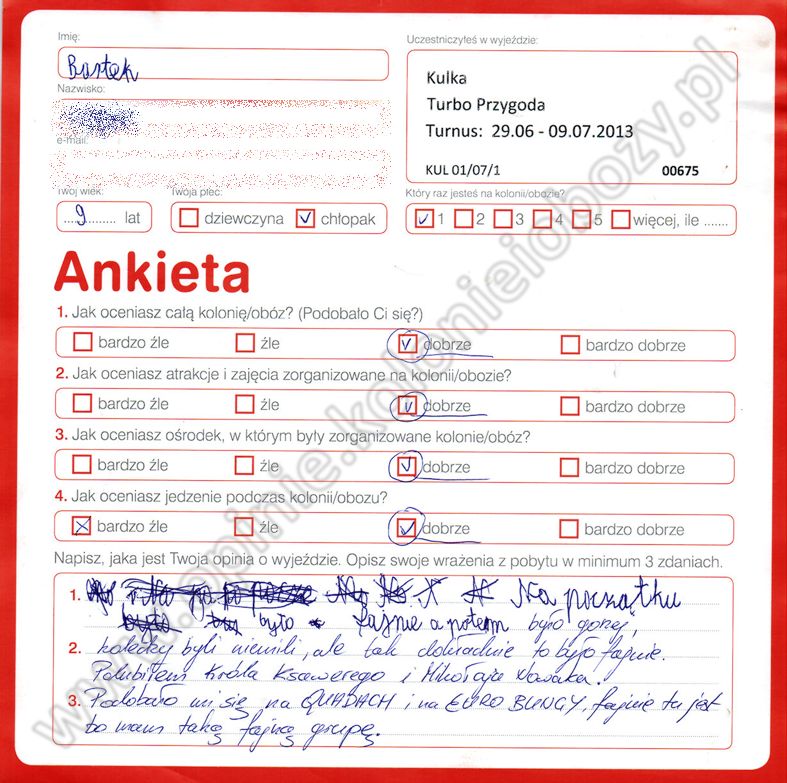 Imię:
Bartek
Nazwisko:
e-mail:
Twój wiek:
9 lat
Twoja płeć:
dziewczyna chłopak
Uczestniczyłeś w wyjeździe:
Kulka
Turbo Przygoda
Turnus: 29.06 - 09.07.2013
KUL 01/07/1 00675
Który raz jesteś na kolonii/obozie?
1 2 3 4 5 więcej, ile .......
Ankieta
1. Jak oceniasz całą kolonię/obóz? (Podobało Ci się?)
bardzo źle źle dobrze bardzo dobrze
2. Jak oceniasz atrakcje i zajęcia zorganizowane na kolonii/obozie?
bardzo źle źle dobrze bardzo dobrze
3. Jak oceniasz ośrodek, w którym były zorganizowane kolonie/obóz?
bardzo źle źle dobrze bardzo dobrze
4. Jak oceniasz jedzenie podczas kolonii/obozu?
bardzo źle źle dobrze bardzo dobrze
Napisz, jaka jest Twoja opinia o wyjeździe. Opisz swoje wrażenia z pobytu w minimum 3 zdaniach.
1. Na początku
było fajnie a potem było gorzej,
2. koledzy byli niemili, ale tak dokładnie to było fajnie.
Polubiłem Króla Ksawerego i Mikołaja Nowaka.
3. Podobało mi się na QUADACH i na EURO BUNGY, fajnie tu jest
bo mam taką fajną grupę.
www.opinie.kolonieiobozy.pl